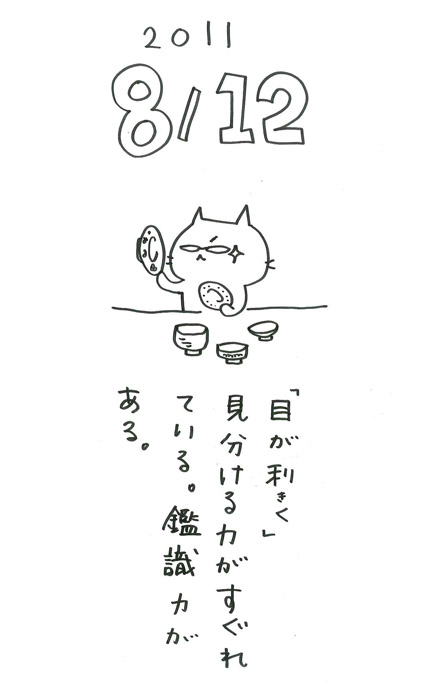 2011
8/12
「目が利きく」
見分ける力がすぐれ
ている。鑑識力が
ある。